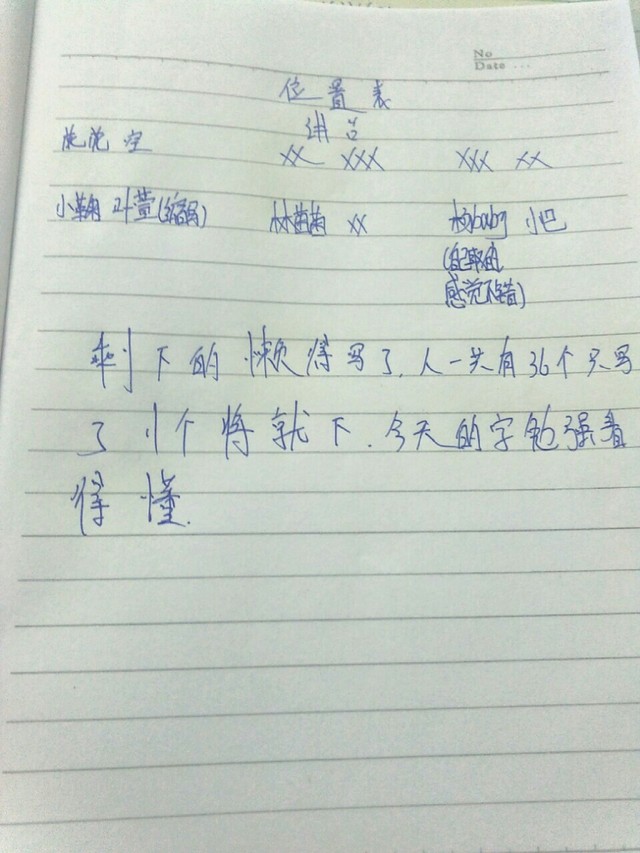 No
Date
位置表
讲台
沈沈 空 XX XXX XXX XX
小翰 叶萱 林茵茵 XX baby 小巴
感觉不错)
剩下的懒得写了,人一共有36个只写
了 个将就下.今天的字勉强看
得懂.